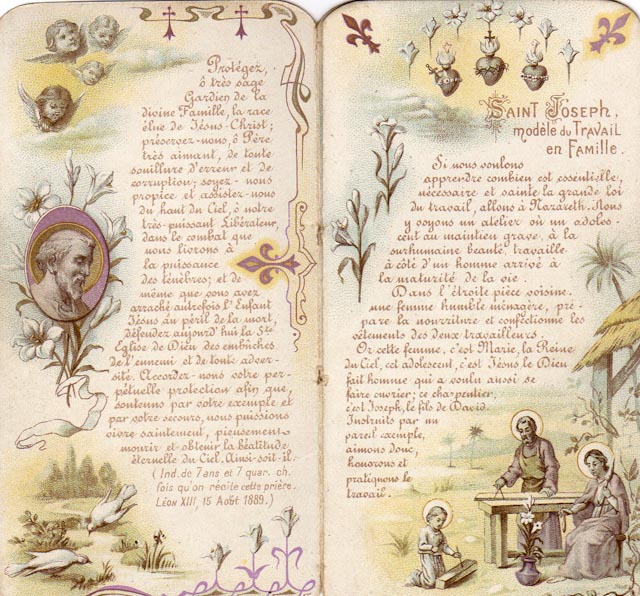 Protégez,
ô très sage
Gardien de la
divine Famille, la race
élue de Jésus-Christ ;
préservez-nous, ô Père
très aimant, de toute
souillure d'erreur et de
corruption ; soyez-nous
propice et assistez-nous
du haut du Ciel, ô notre
très-puissant Libérateur,
dans le combat que
nous livrons à
la puissance
des ténèbres ; et de
même que vous avez
arraché autrefois l'Enfant
Jésus au péril de la mort,
défendez aujourd'hui la Ste
Eglise de Dieu des embûches
de l'ennemi et de toute adver-
sité. Accordez-nous votre per-
pétuelle protection afin que,
soutenus par votre exemple et
par votre secours, nous puissions
vivre saintement, pieusement
mourir et obtenir la béatitude
éternelle du Ciel. Ainsi-soit-il.
(Ind. de 7 ans et 7 quar. ch.
fois qu'on récite cette prière.
LÉON XIII, 15 Août 1889.)
SAINT JOSEPH,
modèle du TRAVAIL
en FAMILLE.
Si nous voulons
apprendre combien est essentielle,
nécessaire et sainte la grande loi
du travail, allons à Nazareth. Nous
y voyons un atelier où un adoles-
cent au maintien grave, à la
surhumaine beauté, travaille
à côté d'un homme arrivé à
la maturité de la vie.
Dans l'étroite pièce voisine,
une femme humble ménagère, pré-
pare la nourriture et confectionne les
vêtements des deux travailleurs.
Or cette femme, c'est Marie, la Reine
du Ciel, cet adolescent, c'est Jésus le Dieu
fait homme qui a voulu aussi se
faire ouvrier ; ce charpentier,
c'est Joseph, le fils de David.
Instruits par un
pareil exemple,
aimons donc,
honorons et
pratiquons le
travail.